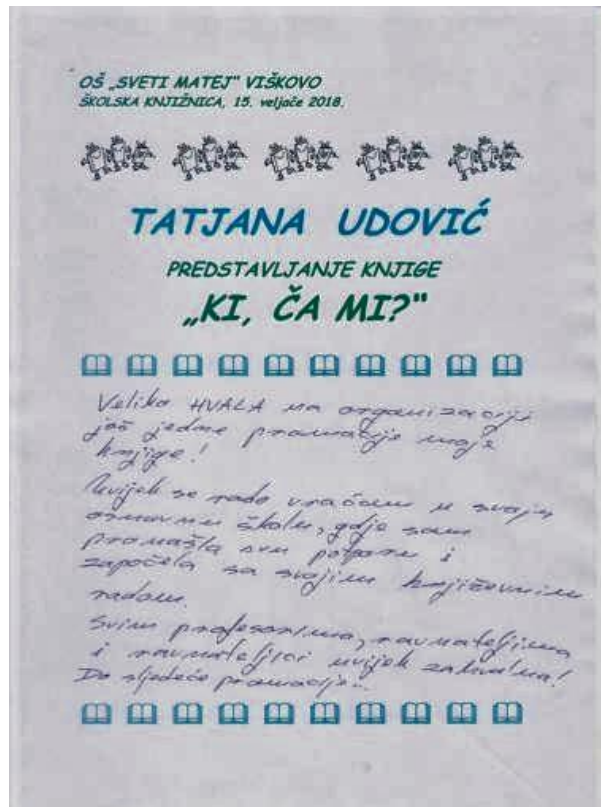 OŠ „SVETI MATEJ" VIŠKOVO
ŠKOLSKA KNJIŽNICA, 15. veljače 2018.
TATJANA UDOVIĆ
PREDSTAVLJANJE KNJIGE
„KI, ČA MI?"
Velika HVALA na organizaciji
još jedne promocije moje
knjige!
Uvijek se rado vraćam u svoju
osnovnu školu, gdje sam
pronašla svu potporu i
započela sa svojim književnim
radom.
Svim profesorima, ravnateljima
i ravnateljici uvijek zahvalna!
Do sljedeće promocije...